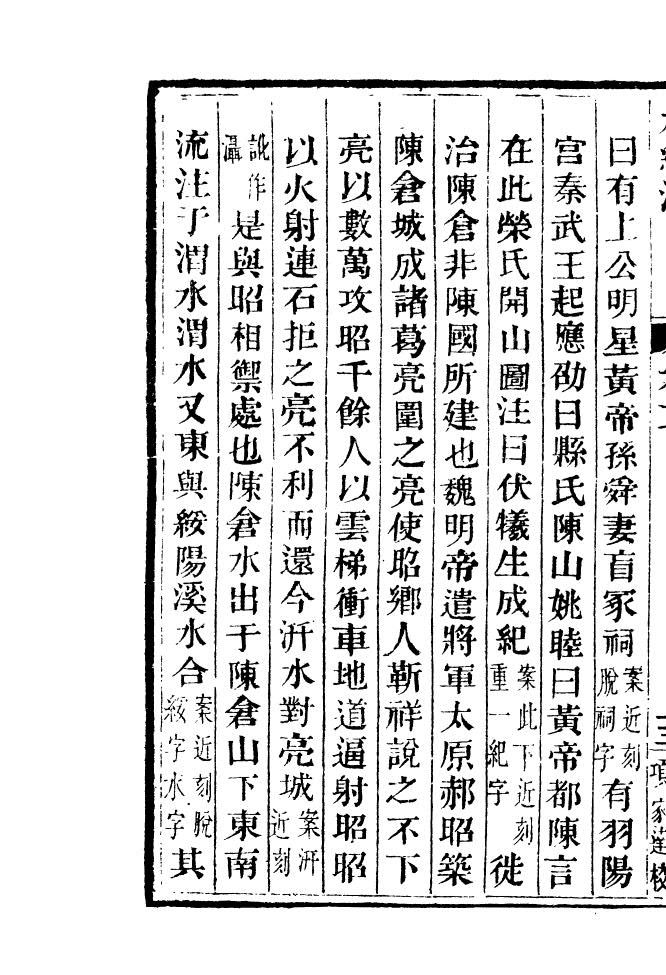 曰有上公明星黃帝孫舜妻盲冢祠案近刻脫祠字有羽陽
宮秦武王起應劭曰縣氏陳山姚睦曰黃帝都陳言
在此榮氏開山圖注曰伏犧生成紀案此下近刻重一紀字徙
治陳倉非陳國所建也魏明帝遣將軍太原郝昭築
陳倉城成諸葛亮圍之亮使昭鄉人靳祥說之不下
亮以數萬攻昭千餘人以雲梯衝車地道逼射昭昭
以火射連石拒之亮不利而還今汧水對亮城案汧近刻
訛作灄是與昭相禦處也陳倉水出于陳倉山下東南
流注于渭水渭水又東與綏陽溪水合案近刻脫綏字水字其